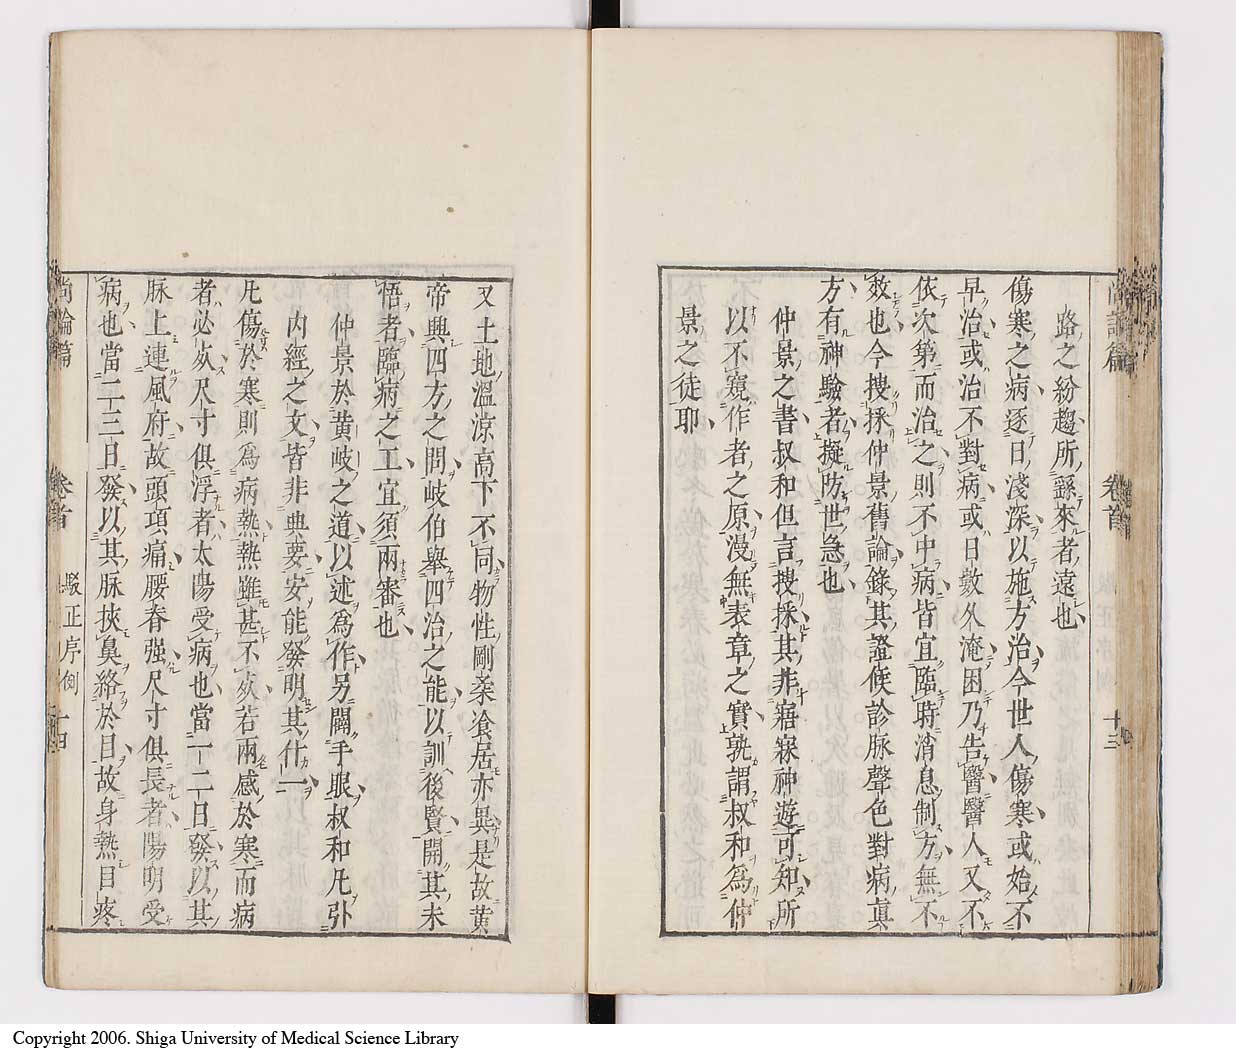 尚論篇 卷首 駁正序例 十三
路之紛趨所繇來者遠也
傷寒之病逐日淺深以施方治今世人傷寒或始不
早治或治不對病或日數久淹困乃告醫醫人又不
依次第而治之則不中病皆宜臨時消息制方無不
效也今搜採仲景舊論錄其證候診脉聲色對病真
方有神驗者擬防世急也
仲景之書叔和但言搜採其非寤寐神遊可知所
以不窺作者之原漫無表章之實孰謂叔和為仲
景之徒耶
又土地溫凉高下不同物性剛柔飡居亦異是故黃
帝興四方之問岐伯舉四治之能以訓後賢開其未
悟者臨病之工宜須兩審也
仲景於黃岐之道以述爲作另闢手眼叔和凡引
內經之文皆非典要安能發明其什一
凡傷於寒則爲病熱熱雖甚不死若兩感於寒而病
者必死尺寸俱浮者太陽受病也當一二日發以其
脉上連風府故頭項痛腰脊强尺寸俱長者陽明受
病也當二三日發以其脉挾鼻絡於目故身熱目疼
尚論篇 卷首 駁正序例 十四
Copyright 2006. Shiga University of Medical Science Library